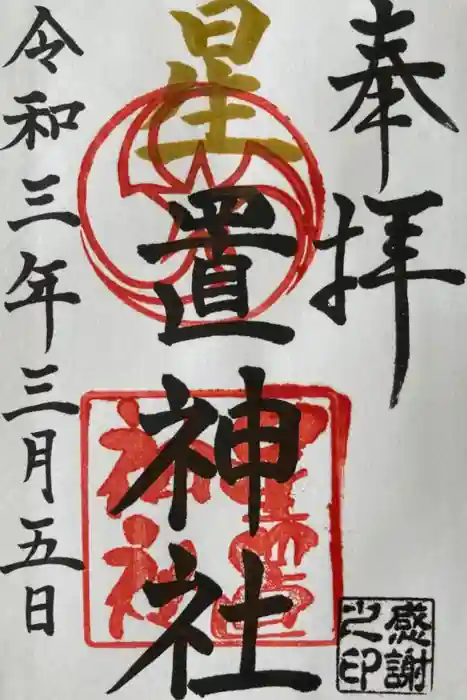 奉拝
星置神社
令和三年三月五日
星置神社
感謝之印